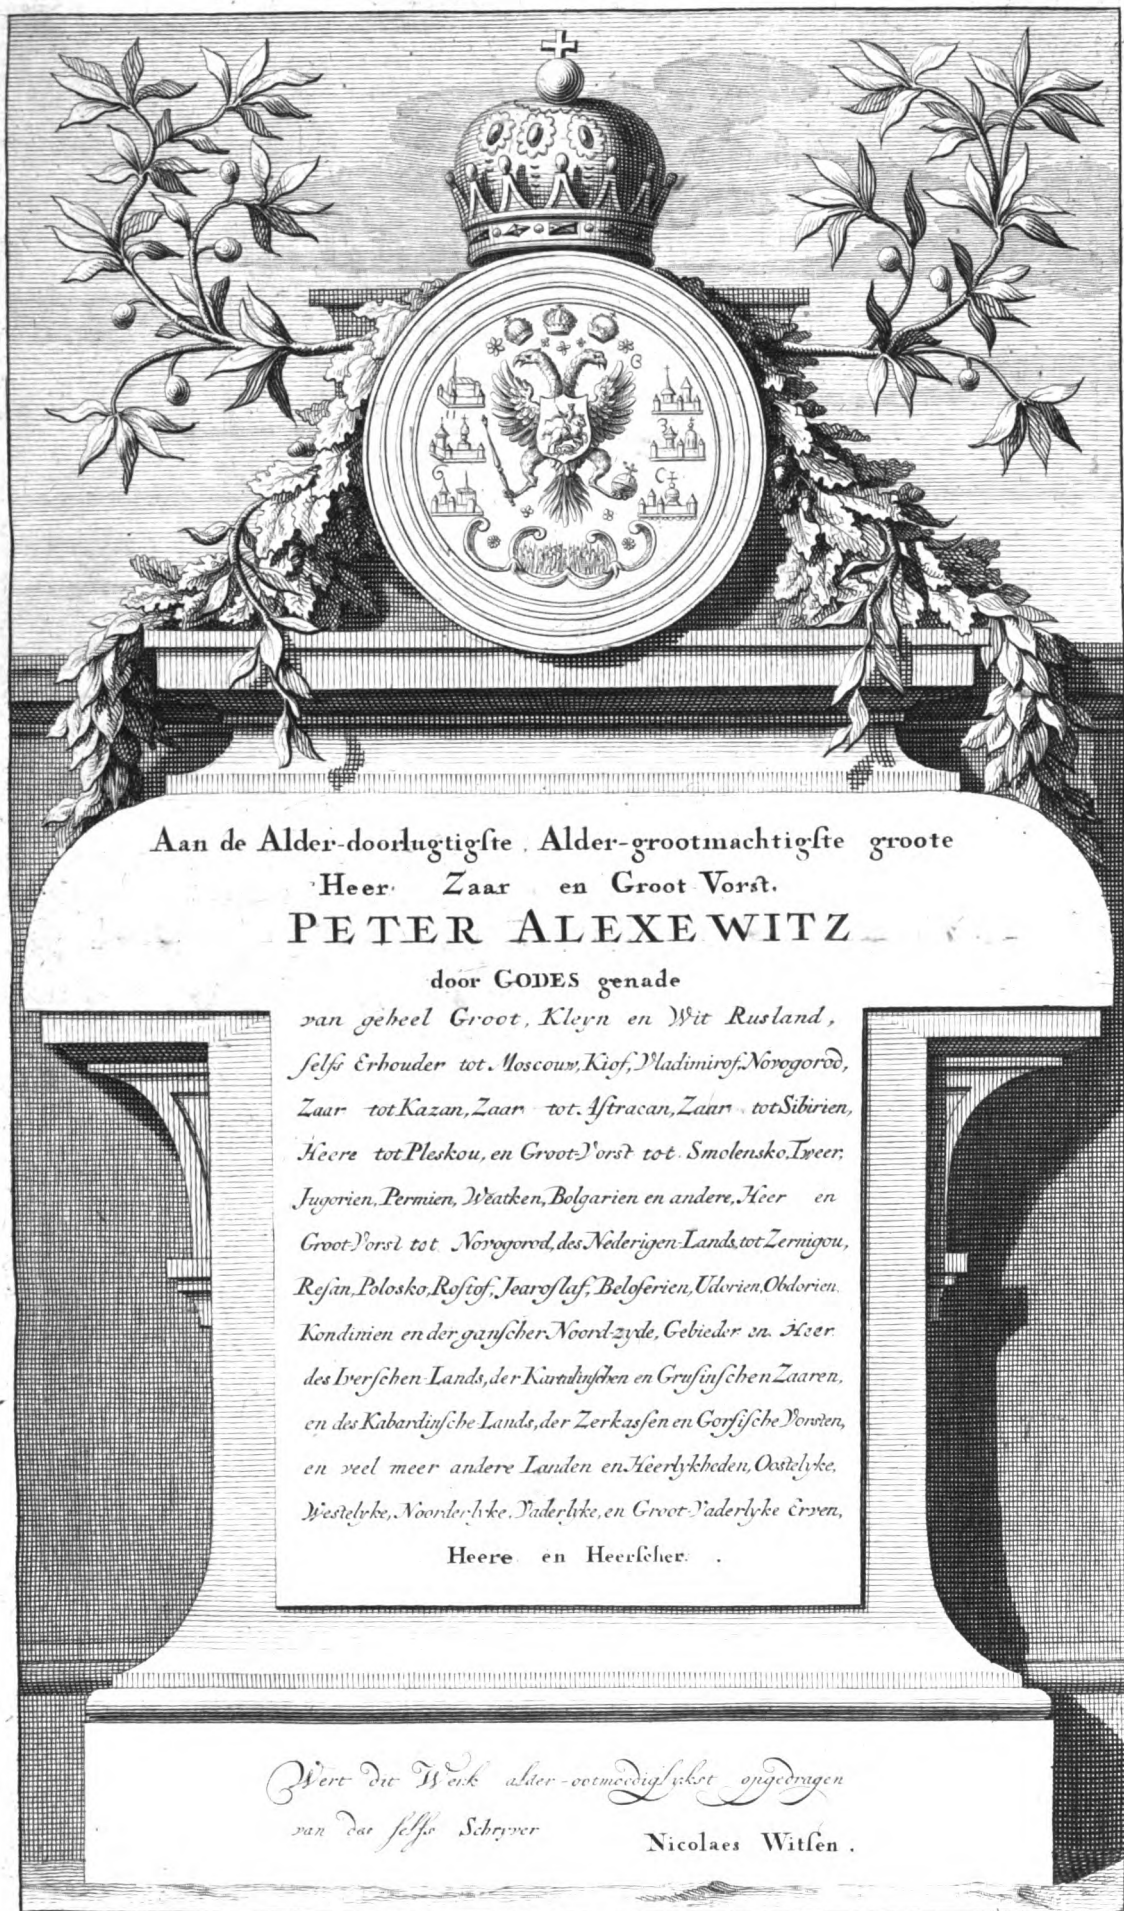 Aan de Alder-doorlugtigſte, Alder-grootmachtigſte groote
Heer Zaar en Groot Vorst.
PETER ALEXEWITZ
door GODES genade
van geheel Groot, Kleyn en Wit Rusland,
ſelfs Erhouder tot Moscouw, Kiof, Vladimirof, Novogorod,
Zaar tot Kazan, Zaar tot Aſtracan, Zaar tot Sibirien,
Heere tot Pleskou, en Groot-Vorst tot Smolensko, Tweer,
Jugorien, Permien, Weatken, Bolgarien en andere, Heer en
Groot-Vorst tot Novogorod, des Nederigen-Lands, tot Zernigou,
Reſan, Polosko, Roſtof, Jearoſlaf, Beloſerien, Udorien, Obdorien,
Kondinien en der ganſcher Noord-zyde, Gebieder en Heer
des Iverſchen Lands, der Kartalinſchen en Gruſinſchen Zaaren,
en des Kabardinſche Lands, der Zerkasſen en Gorſiſche Vorsten,
en veel meer andere Landen en Heerlykheden, Oostelyke,
Westelyke, Noorderlyke, Vaderlyke, en Groot-Vaderlyke Erven,
Heere en Heerſcher.
Wert dit Werk alder-ootmoediglykst opgedragen
van des ſelfs Schryver
Nicolaes Witſen.